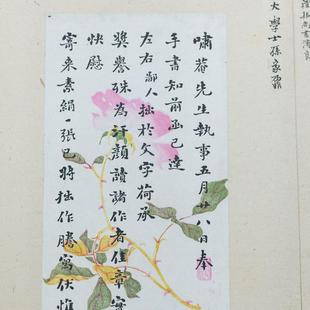 大學士孫家鼐
嘯菴先生執事五月廿八日奉
手書知前函已達
左右鄙人拙於文字荷承
獎譽殊為汗顏讀諸作者佳章實
快慰
寄来素絹一張已將拙作謄寫伏惟